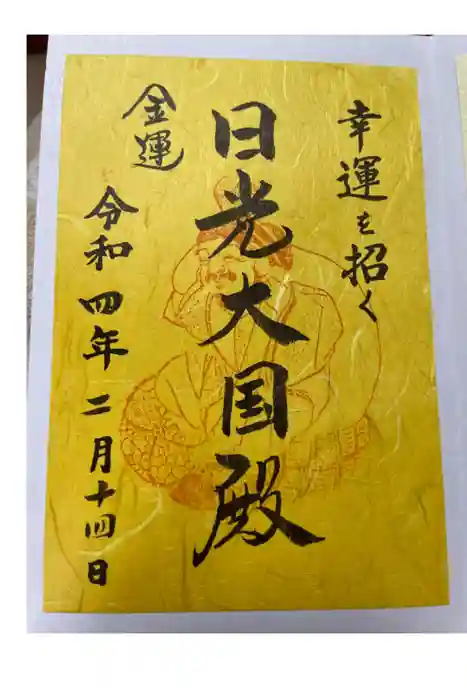 幸運を招く
日光大国殿
金運
令和四年二月十四日